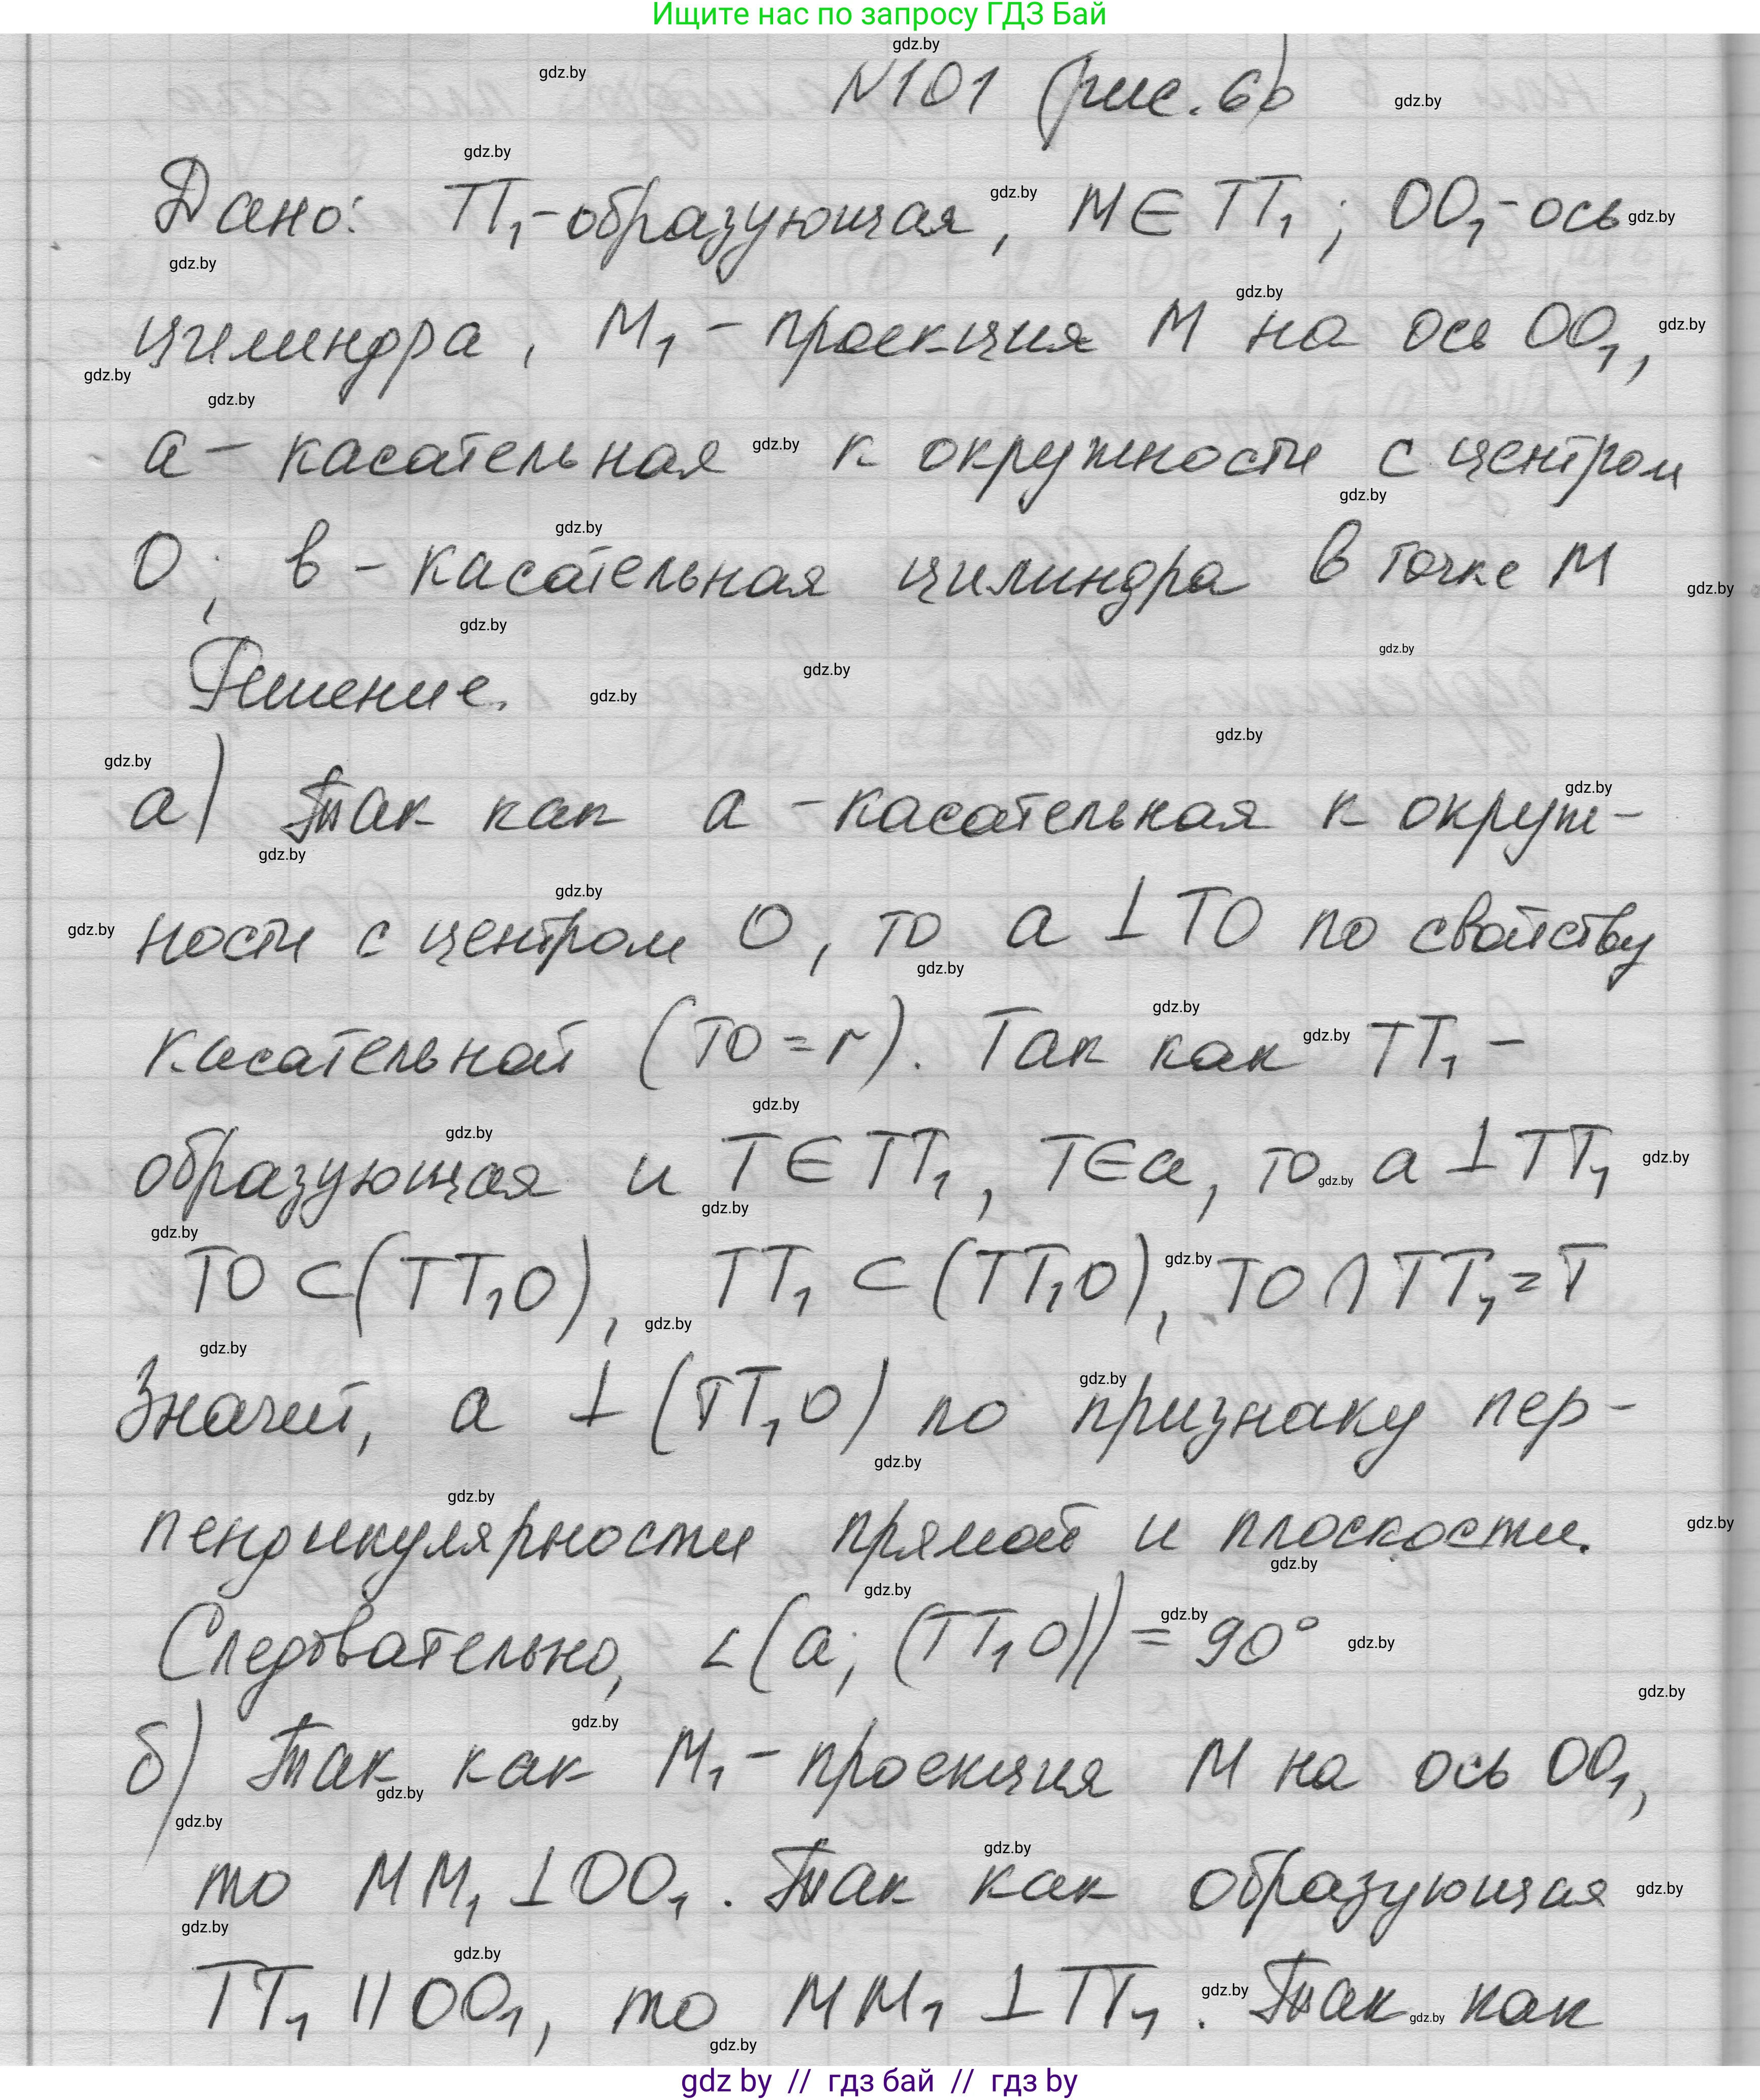 Ищите нас по запросу ГДЗ Бай
N101 (рис. 6)
Дано: TT₁-образующая, M∈TT₁; OO₁-ось
цилиндра, M₁ - проекция M на ось OO₁,
a - касательная к окружности с центром
O; в - касательная цилиндра в точке M
Решение.
а) Так как a - касательная к окруж-
ности с центром O, то a ⊥ TO по свойству
касательной (TO = r). Так как TT₁ -
образующая и T∈TT₁, T∈a, то a ⊥ TT₁
TO ⊂ (TT₁O), TT₁ ⊂ (TT₁O), TO ∩ TT₁ = T
Значит, a ⊥ (TT₁O) по признаку пер-
пендикулярности прямой и плоскости.
Следовательно, ∠(a; (TT₁O)) = 90°
б) Так как M₁ - проекция M на ось OO₁,
то MM₁ ⊥ OO₁. Так как образующая
TT₁ || OO₁, то MM₁ ⊥ TT₁. Так как
gdz by // гдз бай // гдз by